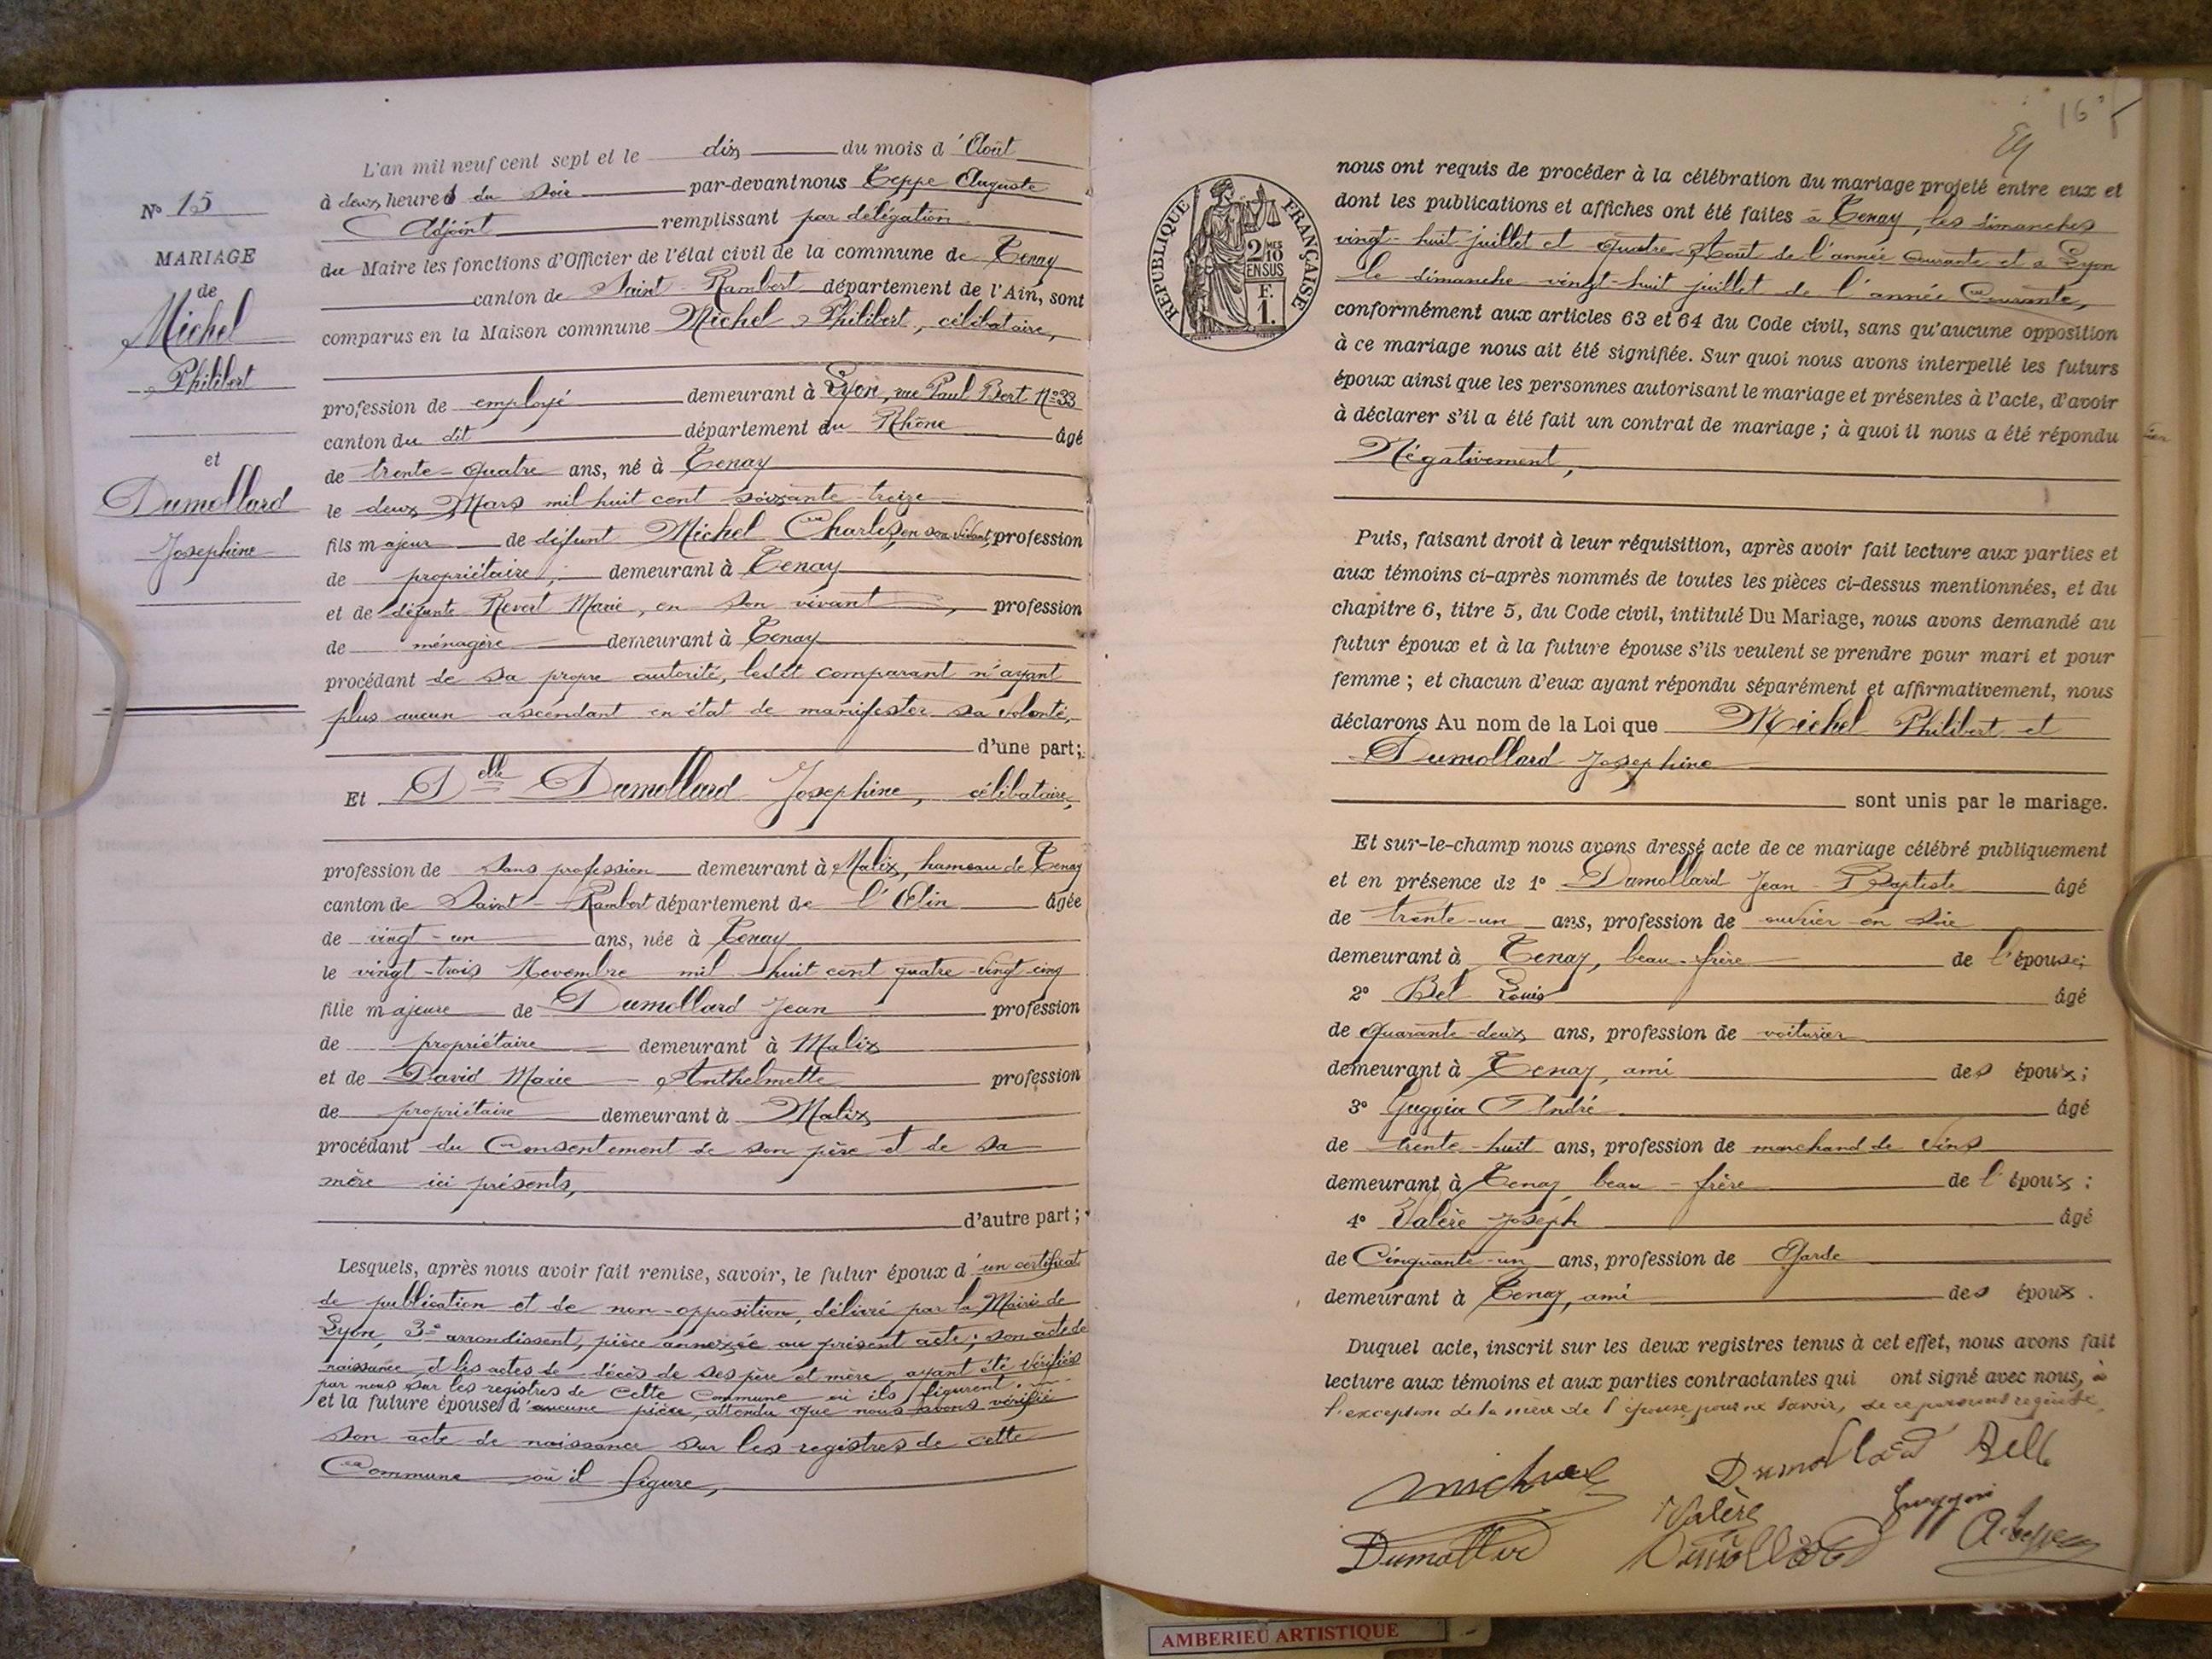 L'an mil neuf cent sept et le dix du mois d'Août
à deux heures du soir par-devant nous Teppe Auguste
Adjoint remplissant par délégation
du Maire les fonctions d'Officier de l'état civil de la commune de Tenay
canton de Saint-Rambert département de l'Ain, sont
comparus en la Maison commune Michel Philibert, célibataire,
profession de employé demeurant à Lyon, rue Paul Bert N° 33
canton du dit département du Rhône âgé
de trente-quatre ans, né à Tenay
le deux Mars mil huit cent soixante-treize
fils majeur de défunt Michel Charles, en son vivant, profession
de propriétaire, demeurant à Tenay
et de défunte Revert Marie, en son vivant, profession
de ménagère demeurant à Tenay
procédant de sa propre autorité, ledit comparant n'ayant
plus aucun ascendant en état de manifester sa volonté,
d'une part;
Et Delle Dumollard Josephine, célibataire,
profession de sans profession demeurant à Malix, hameau de Tenay
canton de Saint-Rambert département de l'Ain âgée
de vingt-un ans, née à Tenay
le vingt-trois Novembre mil huit cent quatre-vingt-cinq
fille majeure de Dumollard Jean profession
de propriétaire demeurant à Malix
et de David Marie-Anthelmette profession
de propriétaire demeurant à Malix
procédant du Consentement de son père et de sa
mère ici présents,
d'autre part;
Lesquels, après nous avoir fait remise, savoir, le futur époux d'un certificat
de publication et de non-opposition, délivré par la Mairie de
Lyon, 3e arrondissent, pièce annexée au présent acte; son acte de
naissance et les actes de décès de ses père et mère, ayant été vérifiés
par nous sur les registres de cette Commune où ils figurent;
et la future épouse d'aucune pièce, attendu que nous avons vérifié
son acte de naissance sur les registres de cette
Commune où il figure,
N° 15
MARIAGE
de
Michel
Philibert
et
Dumollard
Josephine
16
RÉPUBLIQUE FRANÇAISE
2/10
EN SUS
F.
1.
nous ont requis de procéder à la célébration du mariage projeté entre eux et
dont les publications et affiches ont été faites à Tenay, les dimanches
vingt-huit juillet et quatre Août de l'année courante et à Lyon
le dimanche vingt-huit juillet de l'année Courante,
conformément aux articles 63 et 64 du Code civil, sans qu'aucune opposition
à ce mariage nous ait été signifiée. Sur quoi nous avons interpellé les futurs
époux ainsi que les personnes autorisant le mariage et présentes à l'acte, d'avoir
à déclarer s'il a été fait un contrat de mariage; à quoi il nous a été répondu
Négativement,
Puis, faisant droit à leur réquisition, après avoir fait lecture aux parties et
aux témoins ci-après nommés de toutes les pièces ci-dessus mentionnées, et du
chapitre 6, titre 5, du Code civil, intitulé Du Mariage, nous avons demandé au
futur époux et à la future épouse s'ils veulent se prendre pour mari et pour
femme; et chacun d'eux ayant répondu séparément et affirmativement, nous
déclarons Au nom de la Loi que Michel Philibert et
Dumollard Josephine
sont unis par le mariage.
Et sur-le-champ nous avons dressé acte de ce mariage célébré publiquement
et en présence de 1° Dumollard Jean-Baptiste âgé
de trente-un ans, profession de ouvrier en soie
demeurant à Tenay, beau-frère de l'épouse;
2° Bel Louis âgé
de quarante-deux ans, profession de voiturier
demeurant à Tenay, ami des époux;
3° Guggia André âgé
de trente-huit ans, profession de marchand de vins
demeurant à Tenay beau-frère de l'époux;
4° Valère Joseph âgé
de Cinquante-un ans, profession de Garde
demeurant à Tenay, ami des époux.
Duquel acte, inscrit sur les deux registres tenus à cet effet, nous avons fait
lecture aux témoins et aux parties contractantes qui ont signé avec nous, à
l'exception de la mère de l'épouse pour ne savoir, de ce par nous requise
Michel Dumollard Bell
Valère
Dumollard Dumollard A. Teppe
AMBERIEU ARTISTIQUE